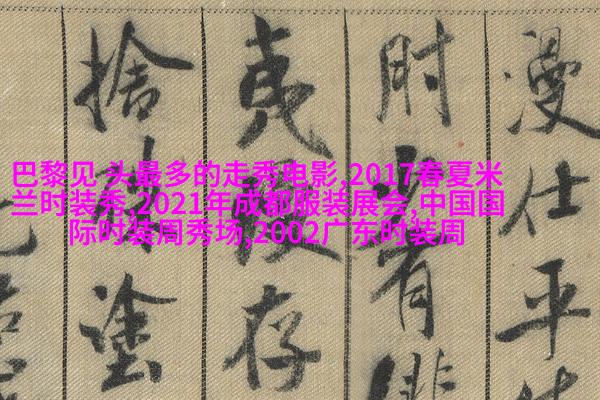 漫仕平
肘少有俳
夷漫存
捨塗
巴黎见 头最多的走秀电影,2017春夏米
兰时装秀,2021年成都服装展会,中国国
际时装周秀场,2002广东时装周